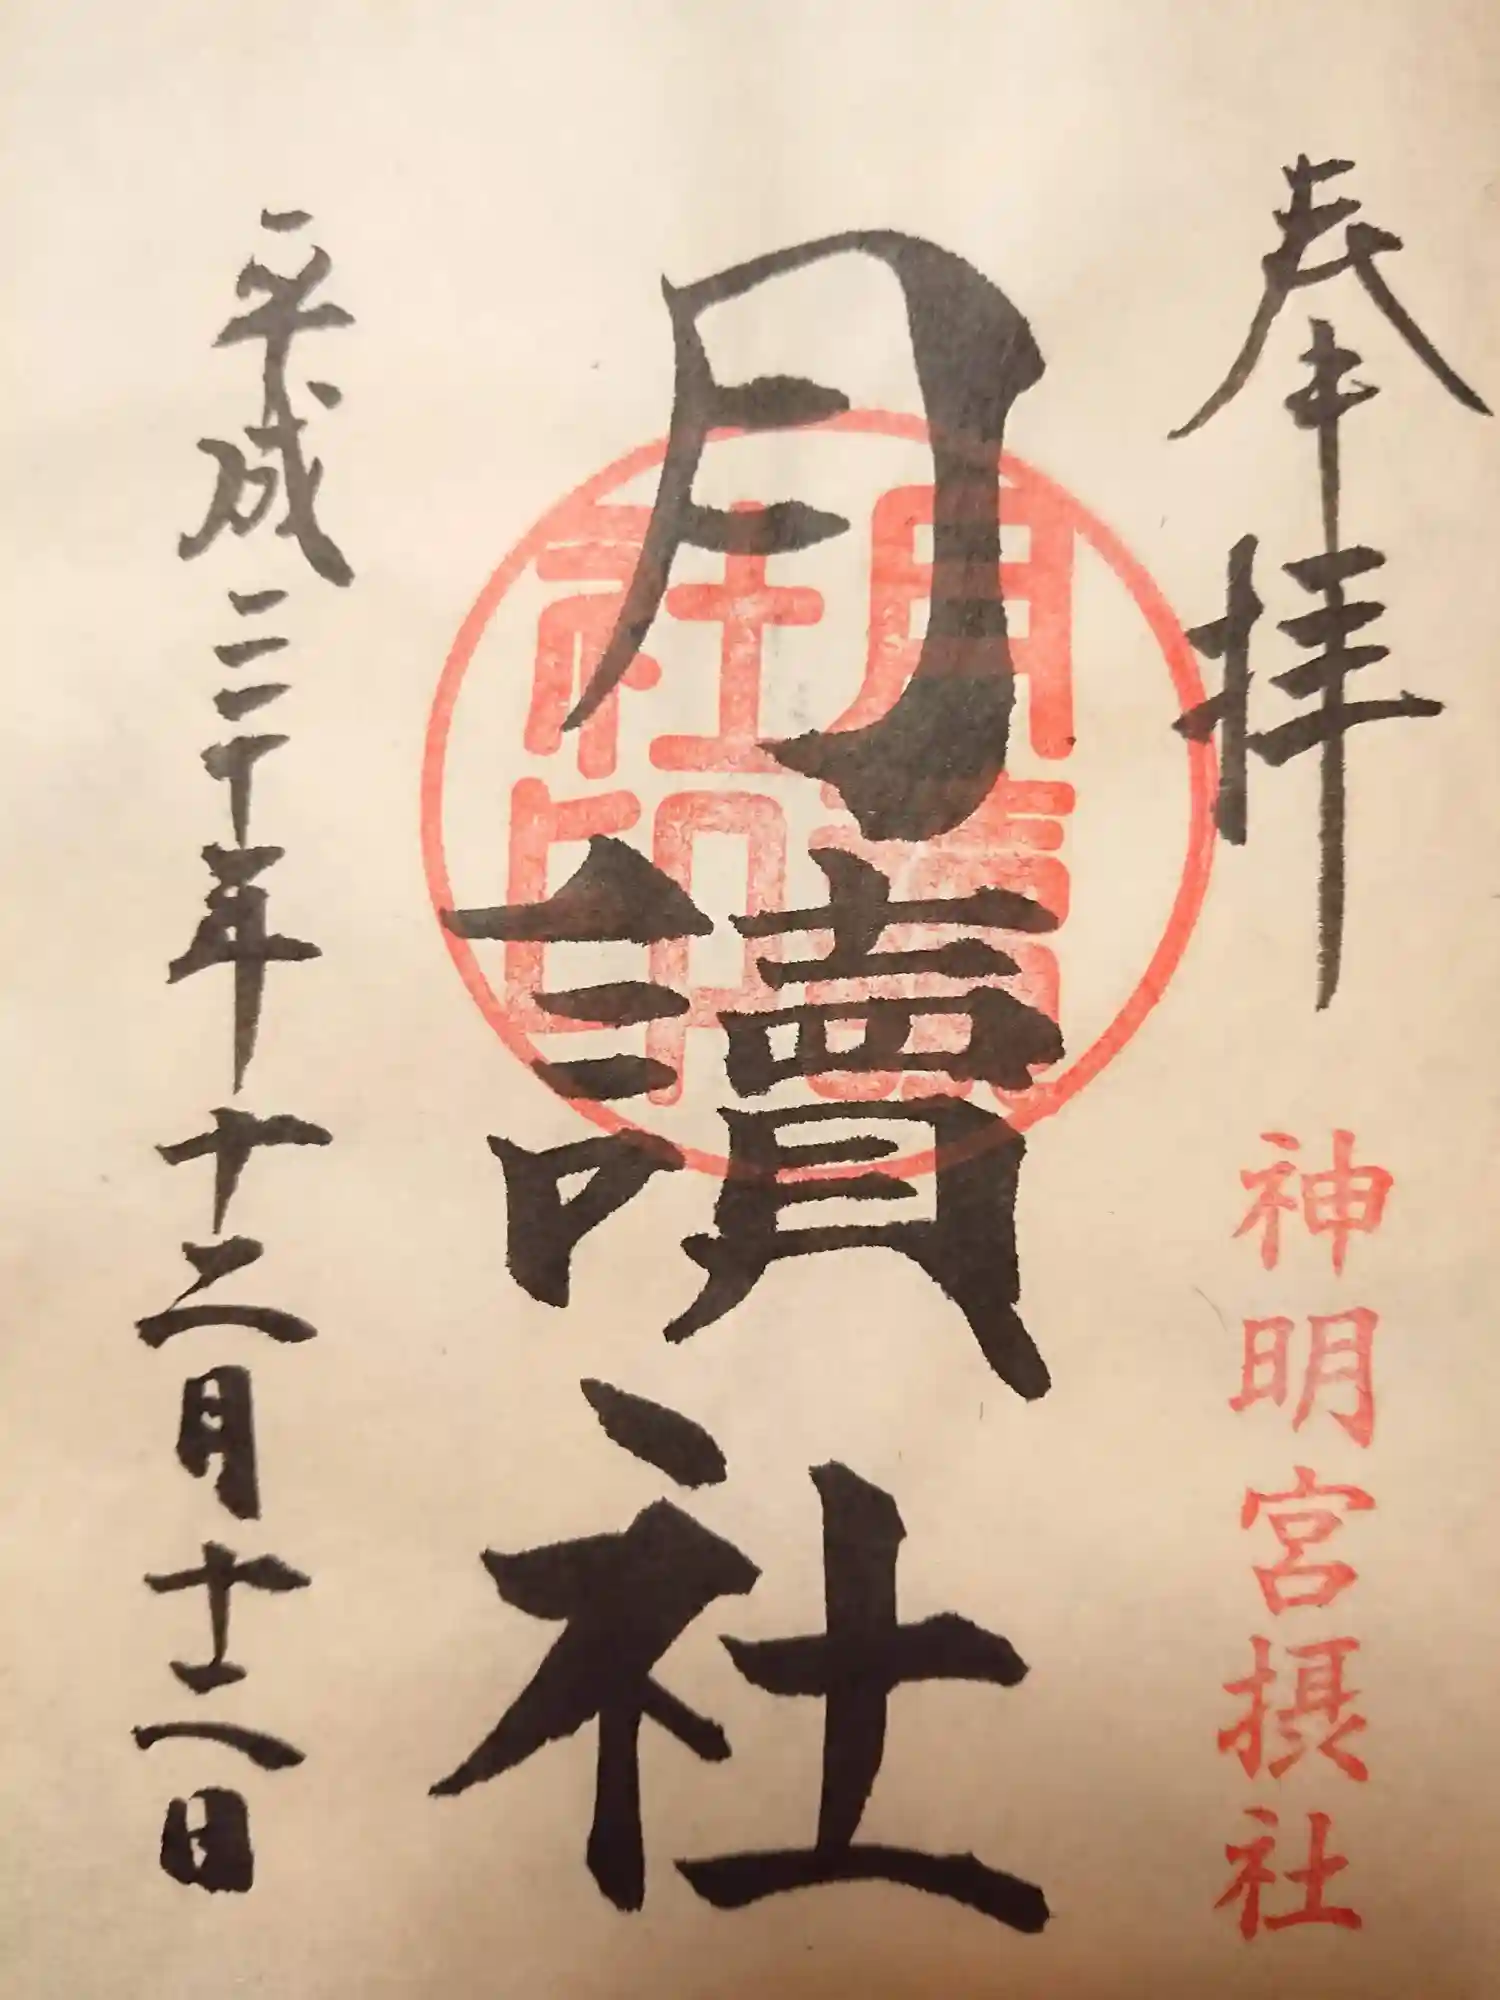 奉拝
神明宮摂社
月讀社
月讀
社印
平成三十年十二月十二日